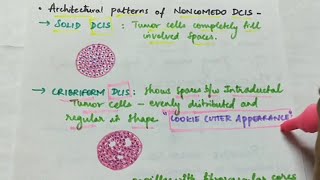 • Architectural patterns of NONCOMEDO DCIS -
→ SOLID DCIS : Tumor cells completely fill
involved spaces.
→ CRIBRIFORM DCIS : shows spaces b/w Intraductal
Tumor cells - evenly distributed and
regular at shape. "COOKIE CUTTER APPEARANCE"
papillae with fibrovascular cores